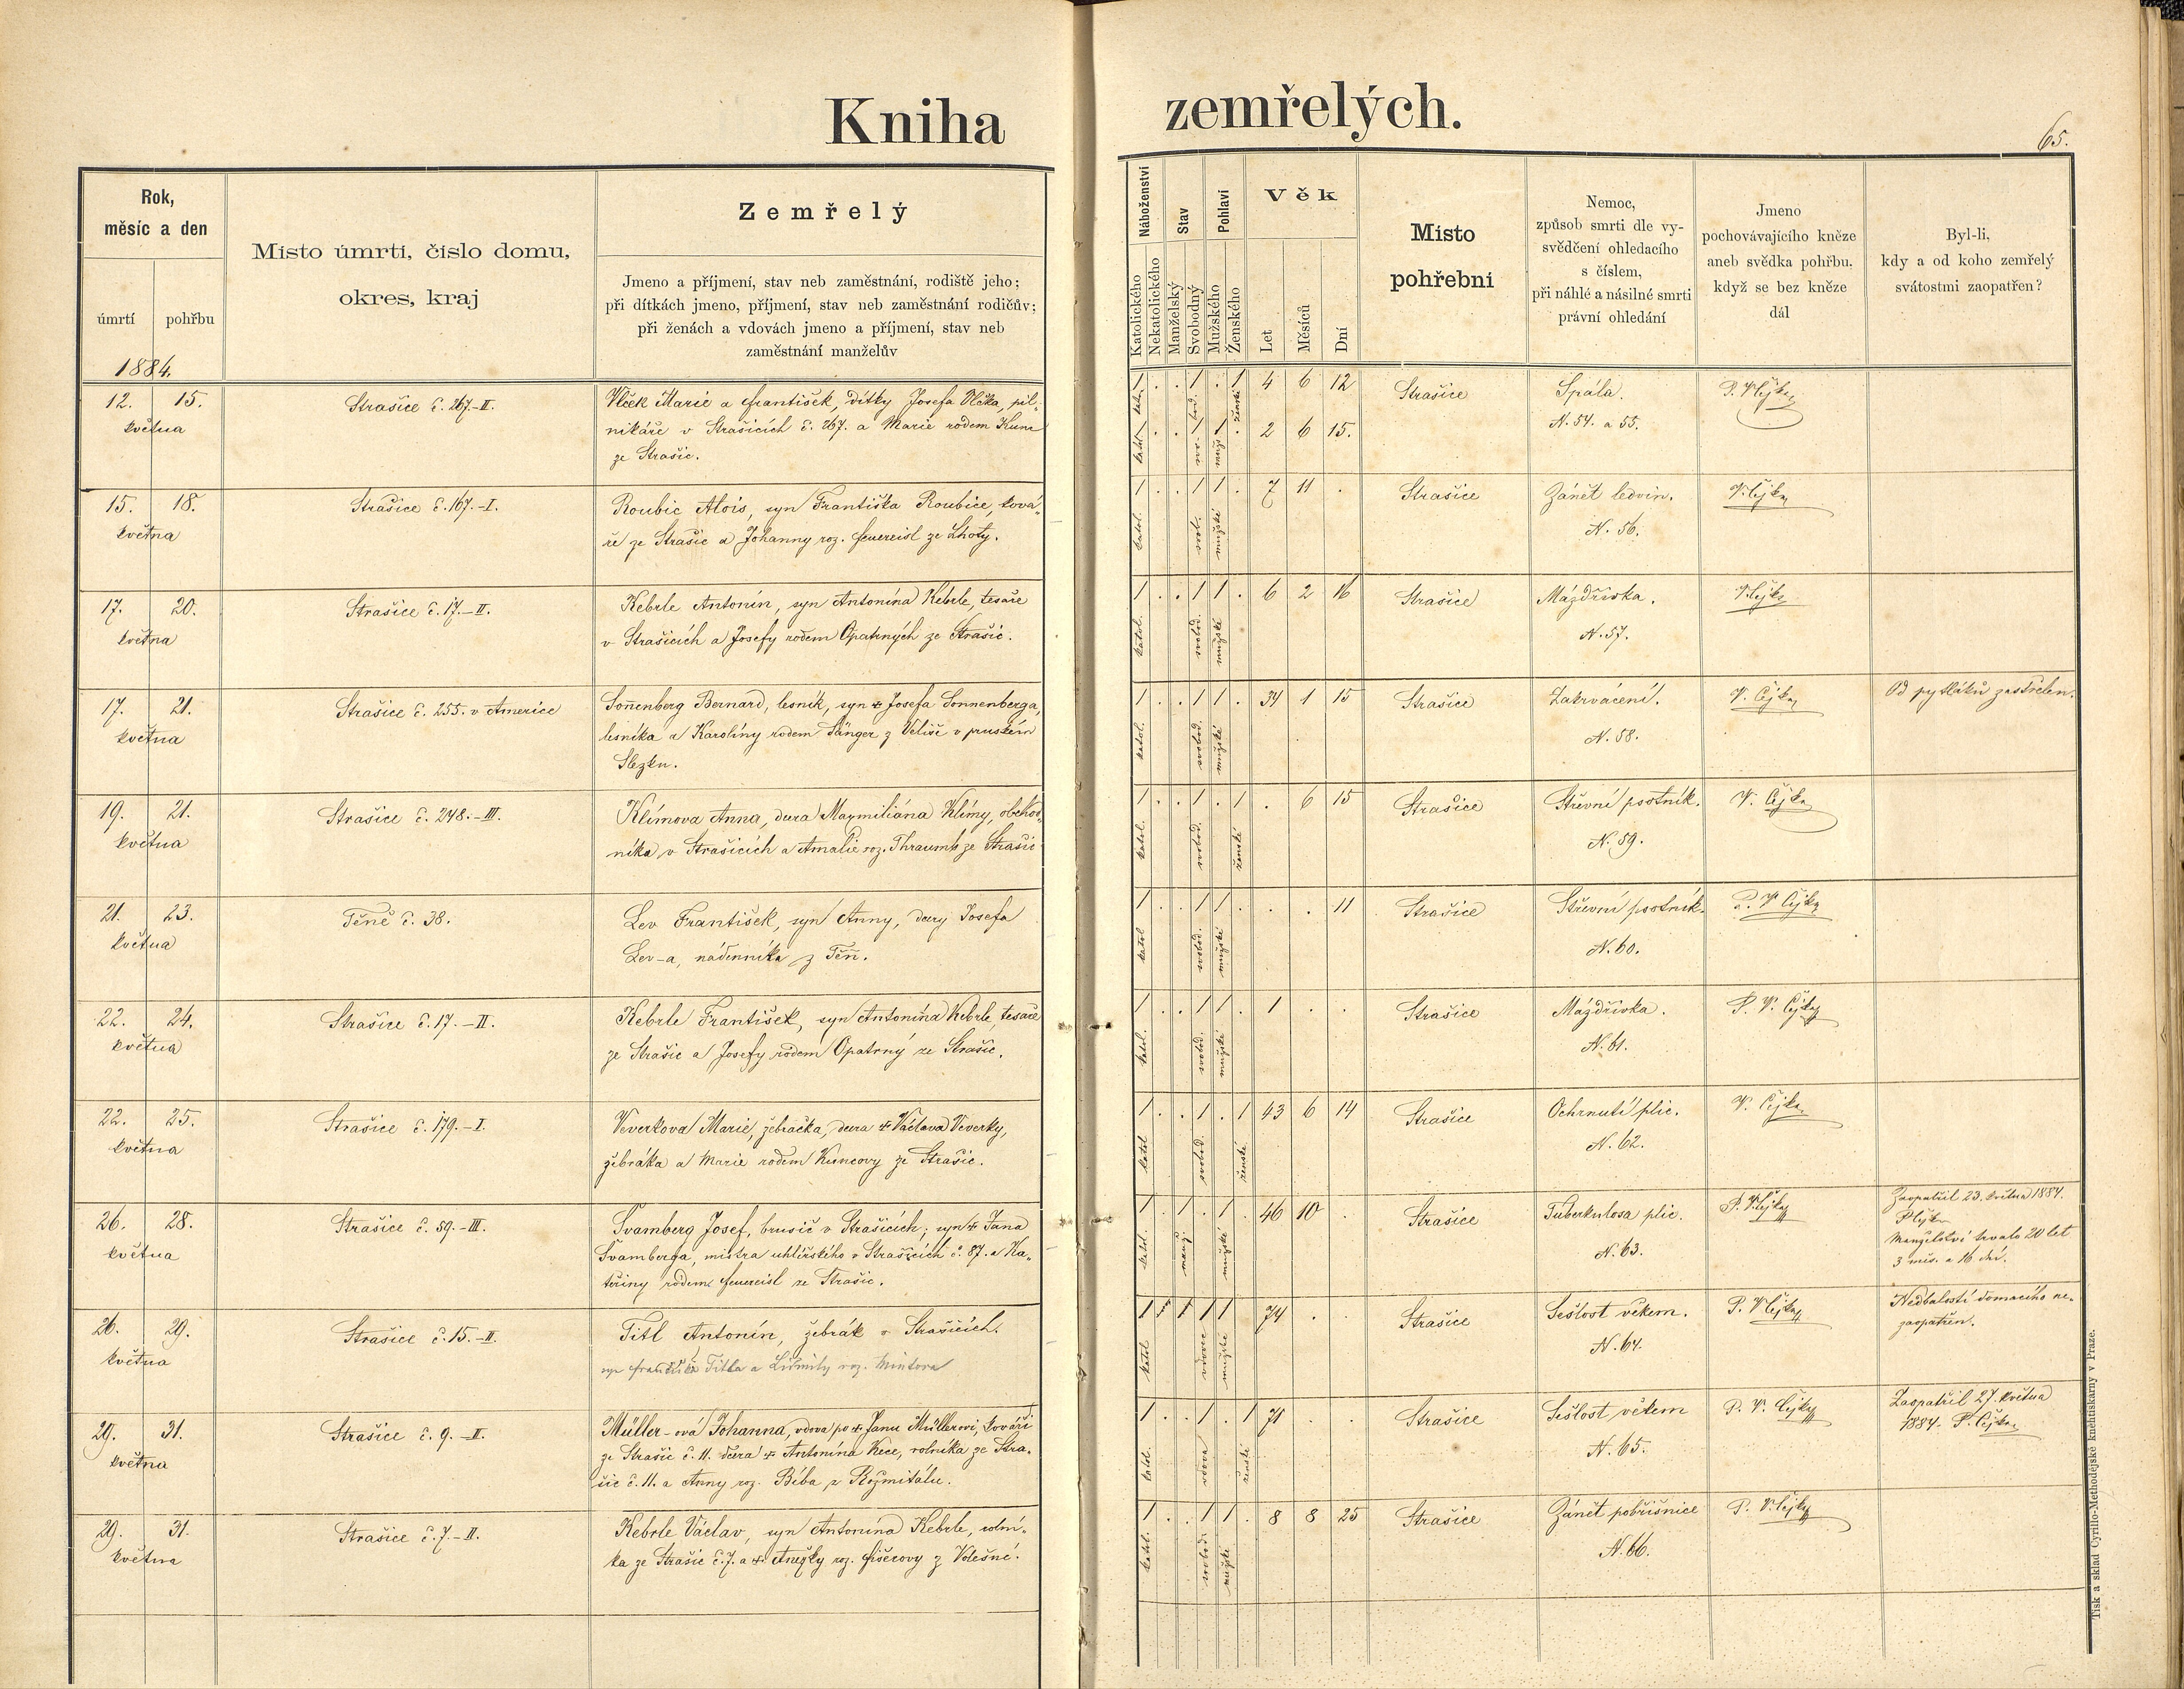 Kniha zemřelých.
65.
Rok,
měsíc a den
úmrtí
pohřbu
Místo úmrtí, číslo domu,
okres, kraj
Zemřelý
Jmeno a příjmení, stav neb zaměstnání, rodiště jeho;
při dítkách jmeno, příjmení, stav neb zaměstnání rodičův;
při ženách a vdovách jmeno a příjmení, stav neb
zaměstnání manželův
Náboženství
Katolického
Nekatolického
Stav
Manželský
Svobodný
Pohlaví
Mužského
Ženského
Věk
Let
Měsíců
Dní
Místo
pohřební
Nemoc,
způsob smrti dle vy-
svědčení ohledacího
s číslem,
při náhlé a násilné smrti
právní ohledání
Jmeno
pochovávajícího kněze
aneb svědka pohřbu,
když se bez kněze
dál
Byl-li,
kdy a od koho zemřelý
svátostmi zaopatřen?
1884.
12. 15.
května
Strašice č. 267.-II.
Vlček Marie a František, dítky Josefa Vlčka, pil-
nikáře v Strašicích č. 267. a Marie rodem Kunc
ze Strašic.
1 . . 1 . 1 4 6 12
katol. svob. ženské
1 . . 1 1 . 2 6 15.
katol. svo. muž.
Strašice
Spála.
N. 54. a 55.
P. V. Čejka
15. 18.
května
Strašice č. 167.-I.
Roubic Alois, syn Františka Roubice, ková-
ře ze Strašic a Johanny roz. Feuereisl ze Lhoty.
1 . . 1 1 . 7 11 .
katol. svob. mužské
Strašice
Zánět ledvin.
N. 56.
V. Čejka
17. 20.
května
Strašice č. 17.-II.
Kebrle Antonín, syn Antonína Kebrle, tesaře
v Strašicích a Josefy rodem Opatrných ze Strašic.
1 . . 1 1 . 6 2 16
katol. svobod. mužské
Strašice
Mázdřivka.
N. 57.
V. Čejka
17. 21.
května
Strašice č. 255. v Americe
Sonenberg Bernard, lesník, syn + Josefa Sonnenberga,
lesníka a Karolíny rodem Sänger z Veliše v pruském
Slezku.
1 . . 1 1 . 34 1 15
katol. svobod. mužské
Strašice
Zakrvácení.
N. 58.
V. Čejka
Od pytláků zastřelen.
19. 21.
května
Strašice č. 248.-III.
Klímova Anna, dcera Maxmiliána Klímy, obchod-
níka v Strašicích a Amalie roz. Thraumb ze Strašic
1 . . 1 . 1 . 6 15
katol. svobod. ženské
Strašice
Střevní psotník.
N. 59.
V. Čejka
21. 23.
května
Těně č. 38.
Lev František, syn Anny, dcery Josefa
Lev-a, nádenníka z Těň.
1 . . 1 1 . . . 11
katol svobod. mužské
Strašice
Střevní psotník.
N. 60.
P. V. Čejka
22. 24.
května
Strašice č. 17.-II.
Kebrle František, syn Antonína Kebrle, tesaře
ze Strašic a Josefy rodem Opatrný ze Strašic.
1 . . 1 1 . 1 . .
katol. svobod. mužské
Strašice
Mázdřivka.
N. 61.
P. V. Čejka
22. 25.
května
Strašice č. 179.-I.
Veverkova Marie, žebračka, dcera + Václava Veverky,
žebráka a Marie rodem Kuncovy ze Strašic.
1 . . 1 . 1 43 6 14
katol svobod. ženské
Strašice
Ochrnutí plic.
N. 62.
V. Čejka
26. 28.
května
Strašice č. 59.-III.
Švamberg Josef, brusič v Strašicích; syn + Jana
Švamberga, mistra uhlířského v Strašicích č. 87. a Ka-
teřiny rodem Feuereisl ze Strašic.
1 . 1 . 1 . 46 10 .
katol. manž. mužské
Strašice
Tuberkulosa plic.
N. 63.
P. V. Čejka
Zaopatřil 23. května 1884.
P. Čejka
Manželství trvalo 20 let
3 měs. a 16 dní.
26. 29.
května
Strašice č. 15.-II.
Titl Antonín, žebrák v Strašicích.
syn Františka Titla a Lidmily roz. Mintova
1 1 1 1 74 . .
katol vdovec mužské
Strašice
Sešlost věkem.
N. 64.
P. V. Čejka
Nedbalostí domacího ne-
zaopatřen.
29. 31.
května
Strašice č. 9.-II.
Müller-ová Johanna, vdova po + Janu Müllerovi, kováři
ze Strašic č. 11. dcera + Antonína Kece, rolníka ze Stra-
šic č. 11. a Anny roz. Béba z Rožmitálu.
1 . . 1 . 1 71 . .
katol. vdova ženské
Strašice
Sešlost věkem
N. 65.
P. V. Čejka
Zaopatřil 27. května
1884. P. Čejka
29. 31.
května
Strašice č. 7.-II.
Kebrle Václav, syn Antonína Kebrle, rolní-
ka ze Strašic č. 7. a + Anežky roz. Fišerovy z Volešné.
1 . . 1 1 . 8 8 25
katol. svobod. mužské
Strašice
Zánět pobřišnice
N. 66.
P. V. Čejka
Tisk a sklad Cyrillo-Methodějské knihtiskárny v Praze.